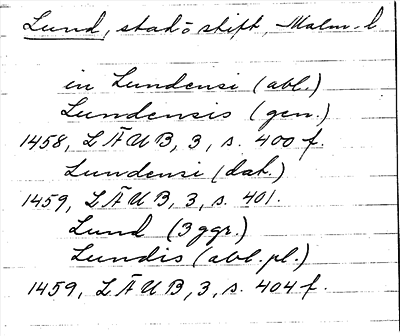 Lund, stad o stift, Malm. l
in Lundensi (abl.)
Lundensis (gen.)
1458, LÄUB, 3, s. 400 f.
Lundensi (dat.)
1459, LÄUB, 3, s. 401.
Lund (3 ggr.)
Lundis (abl. pl.)
1459, LÄUB, 3, s. 404 f.